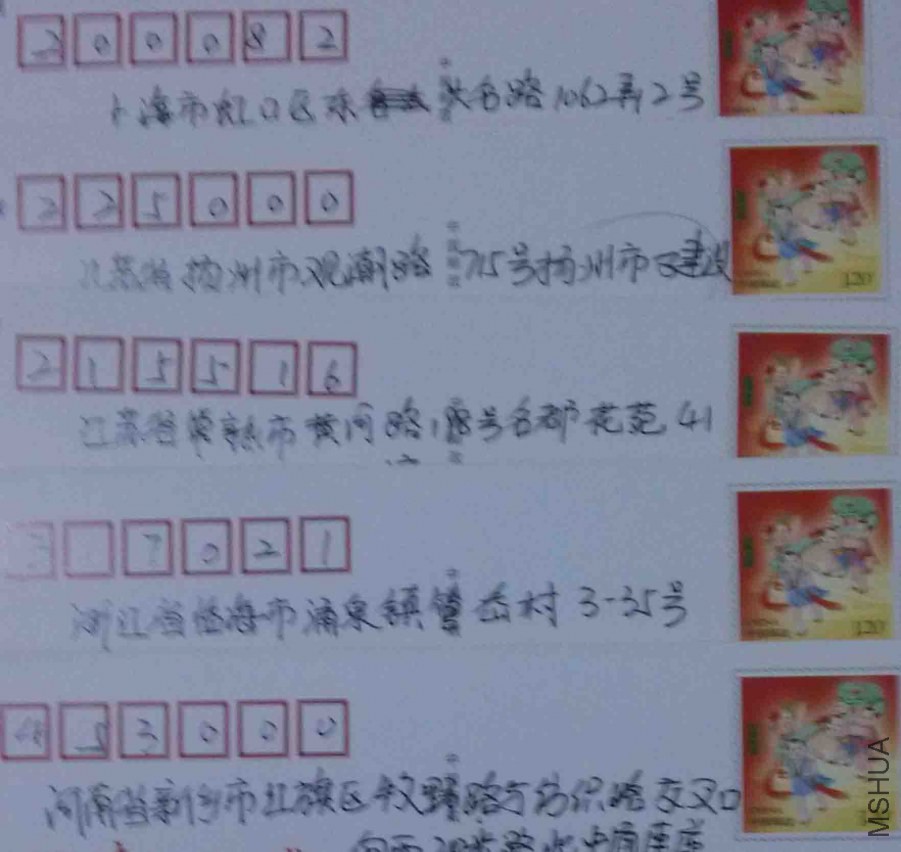 200082
上海市虹口区东大名路1062弄2号
225000
江苏省扬州市观潮路715号扬州市建设
215516
江苏省常熟市黄河路18号名都花苑41
7021
浙江省临海市涌泉镇管岙村3-35号
120
453000
河南省新乡市红旗区牧野路与纺织路交叉口
120
MSHUA